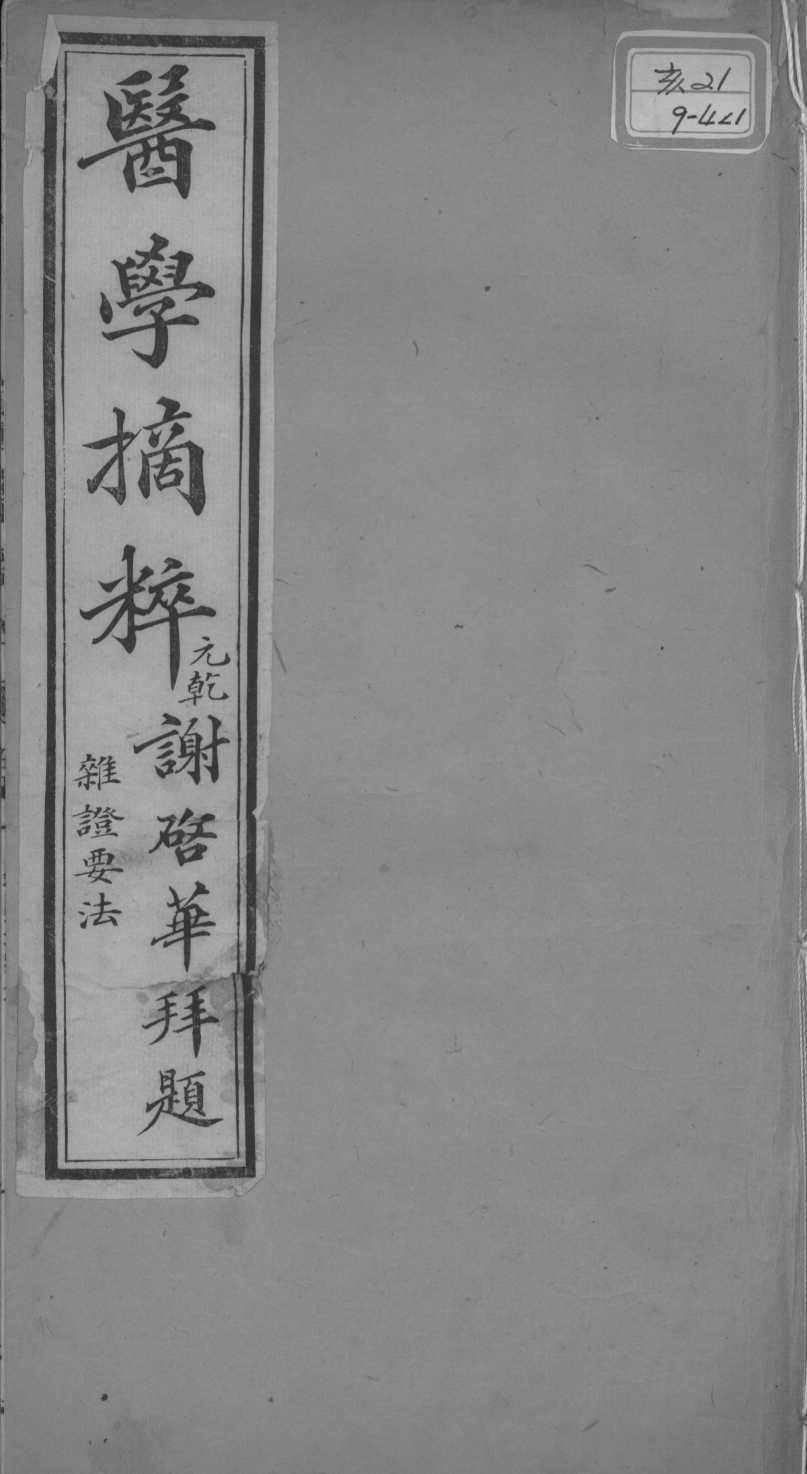 亥21
9-421
醫學摘粹
元乾
謝啓華拜題
雜證要法